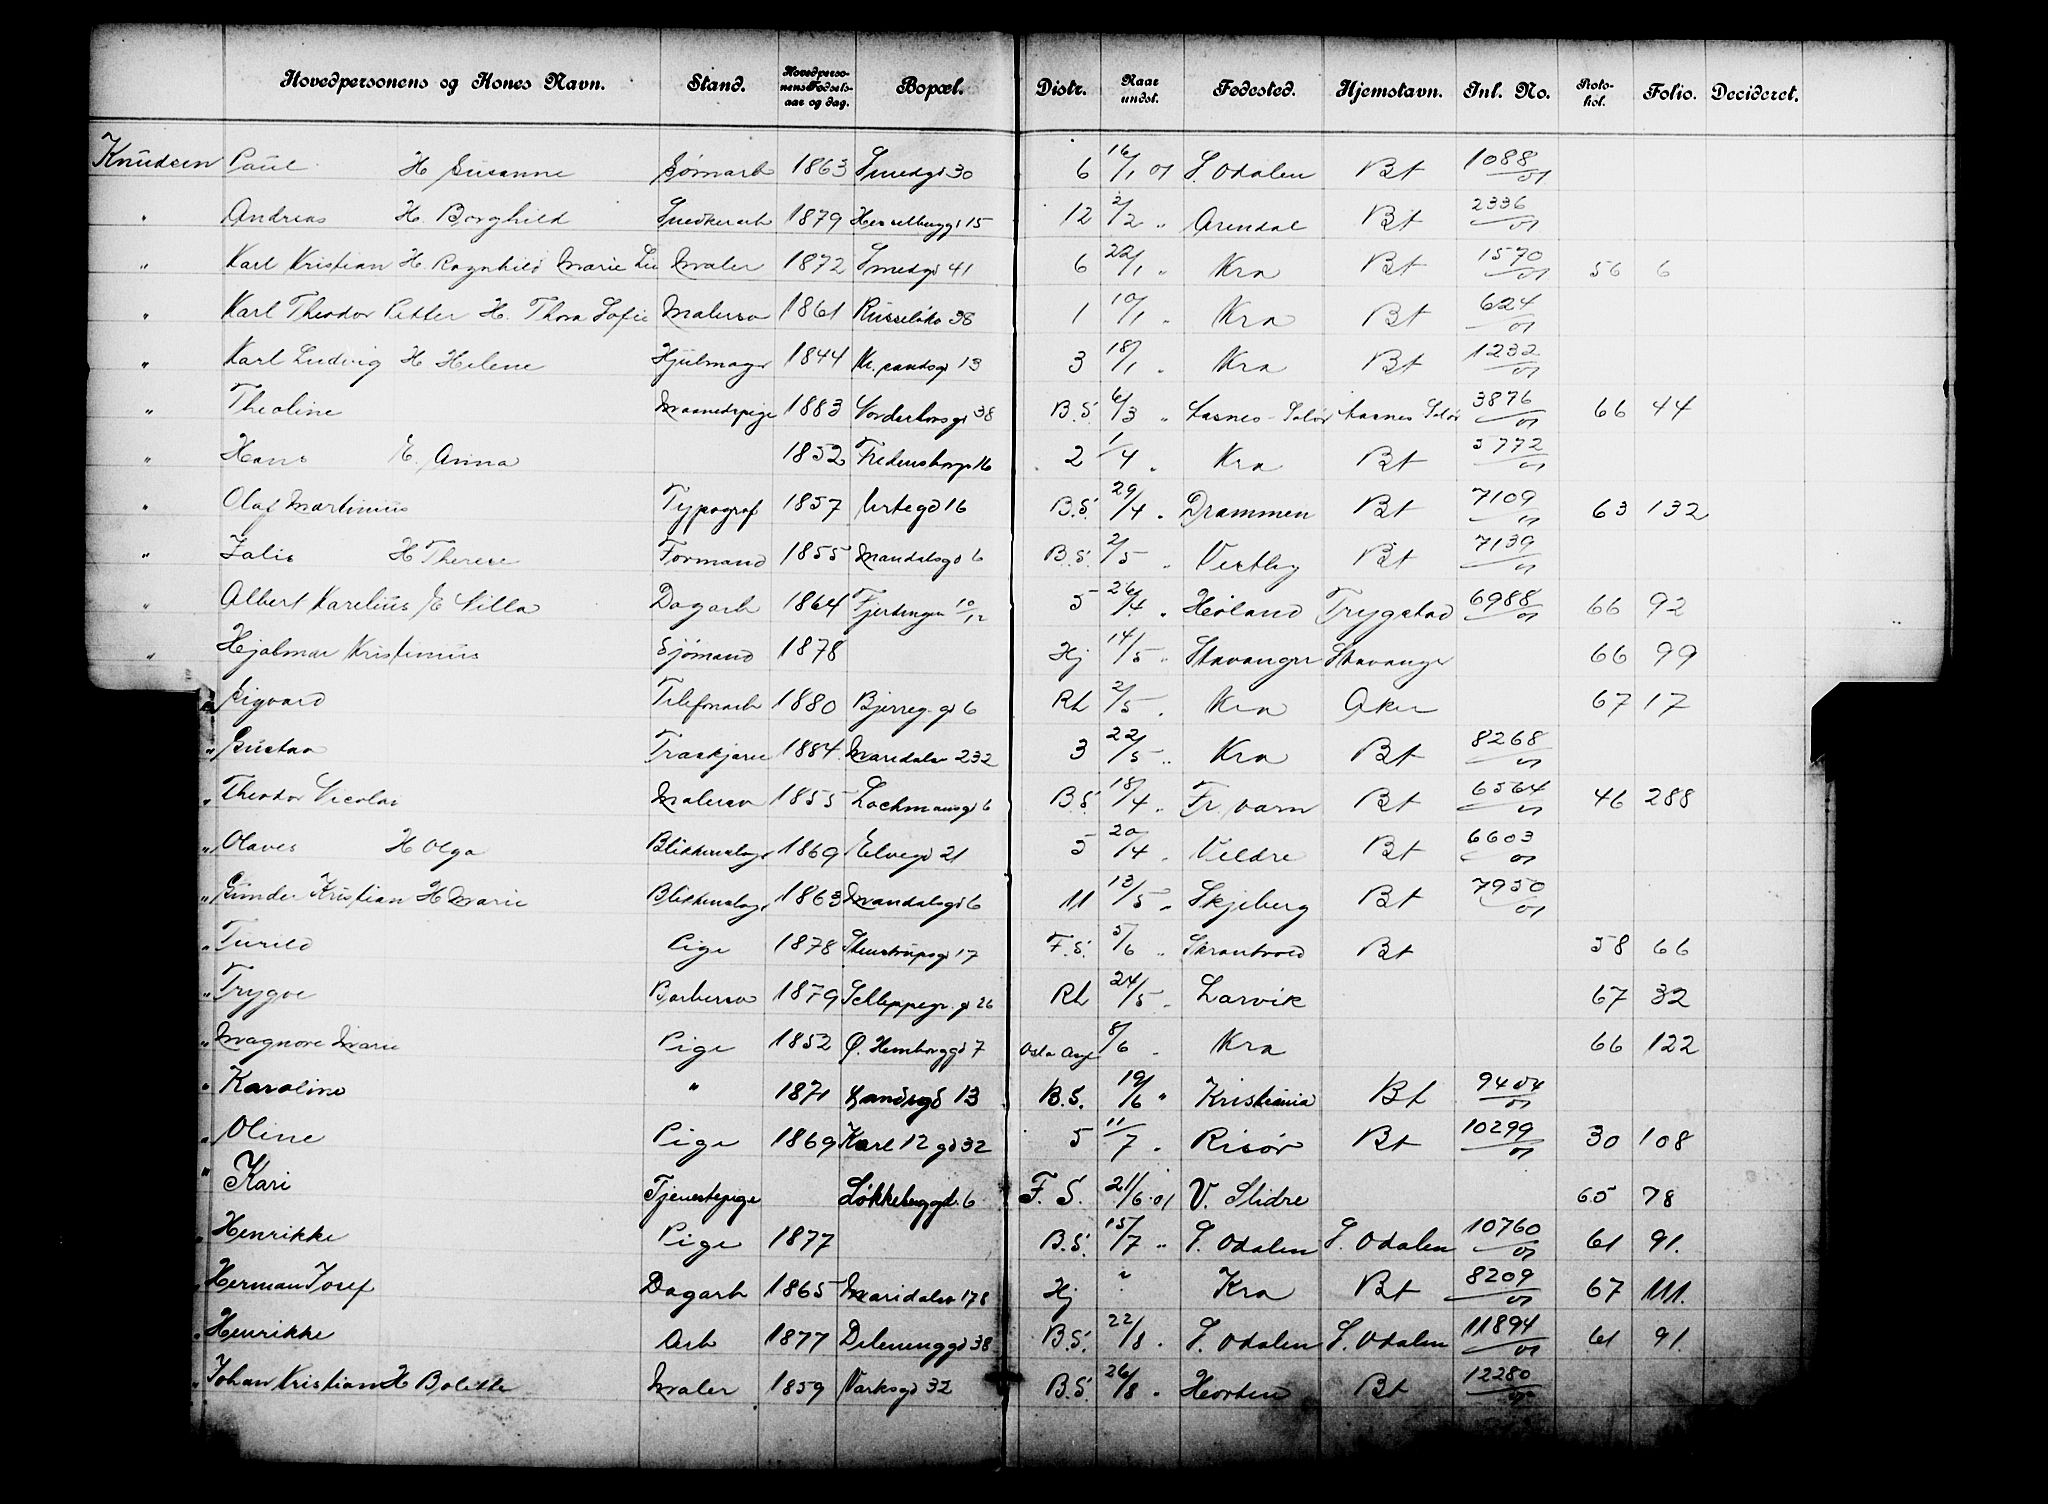 Hovedpersonens og Kones Navn. Stand. Hovedperso-nens Fødsels-aar og dag. Bopæl. Distr. Naar undst. Fødested. Hjemstavn. Jnl. No. Proto-kol. Folio. Decideret.
Knudsen Paul H Susanne Sømarb 1863 Smedgd 30 6 16/1 01 S. Odalen Bt 1088/01
" Andreas H. Borghild Snedkerarb 1879 Hesselbergg 15 12 2/2 " Arendal Bt 2336/01
" Karl Kristian H. Ragnhild Marie Maler 1872 Smedgd 41 6 22/1 " Kra Bt 1570/01 56 6
" Karl Theodor Petter H. Thora Sofie Malersv 1861 Russeløkv 38 1 10/1 " Kra Bt 624/01
" Karl Ludvig H Helene Hjulmager 1844 Kr. sandsgd 13 3 18/1 " Kra Bt 1232/01
" Theoline Maanedspige 1883 Vordarborsgd 38 B.S. 6/3 " Aasnes-Solør Aasnes Solør 3876/01 66 44
" Hans E. Anna 1852 Fredensborgv 16 2 1/4 " Kra Bt 5772/01
" Olaf Martinius Typograf 1857 Urtegd 16 B.S. 29/4 " Drammen Bt 7109/01 63 132
" Julis H Therese Formand 1855 Mandalsgd 6 B.S. 2/5 " Vestby Bt 7139/01
" Albert Karelius E Milla Dagarb 1864 Fjerdingen 10/12 5 26/4 " Høland Trygstad 6988/01 66 92
" Hjalmar Kristinius Sjømand 1878 Hj 14/5 " Stavanger Stavanger 66 99
" Sigvard Telefonarb 1880 Bjerreg. gd 6 Rh 2/5 " Kra Aker 67 17
" Gustav Træskjærer 1884 Maridalsv 232 3 22/5 " Kra Bt 8268/01
" Theodor Nicolai Malersv 1855 Lochmansgd 6 B.S. 18/4 " Fr. værn Bt 6564/01 46 288
" Olaves H Olga Blikkenslager 1869 Elvegd 21 5 20/4 " Veldre Bt 6603/01
" Gunder Kristian H Marie Blikkenslager 1863 Mandalsgd 6 11 13/5 " Skjeberg Bt 7950/01
" Turild Pige 1878 Stenstrupsgd 17 F.S. 5/6 " Bt 58 66
" Trygve Barbersv 1879 Schleppegr. gd 26 Rh 24/5 " Larvik 67 32
" Magnore Marie Pige 1852 Ø. Hembergd 7 8/6 " Kra 66 122
" Karoline " 1871 13 B.S. 19/6 " Kristiania Bt 9404/01
" Oline Pige 1869 Karl 12 gd 32 5 11/7 " Risør Bt 10299/01 30 108
" Kari Tjenestepige Løkkebergd. 6 F. S. 21/6 01 V. Slidre 65 78
" Henrikke Pige 1877 B.S. 15/7 " S. Odalen S. Odalen 10760/01 61 91.
" Herman Josef Dagarb 1865 Maridalsv 178 Hj " " Kra Bt 8209/01 67 111.
" Henrikke Arb 1877 Delenenggd 38 B.S. 22/8 " S. Odalen S. Odalen 11894/01 61 91
" Johan Kristian H Bolette Maler 1859 Verksgd 32 B.S. 26/8 " Horten Bt 12280